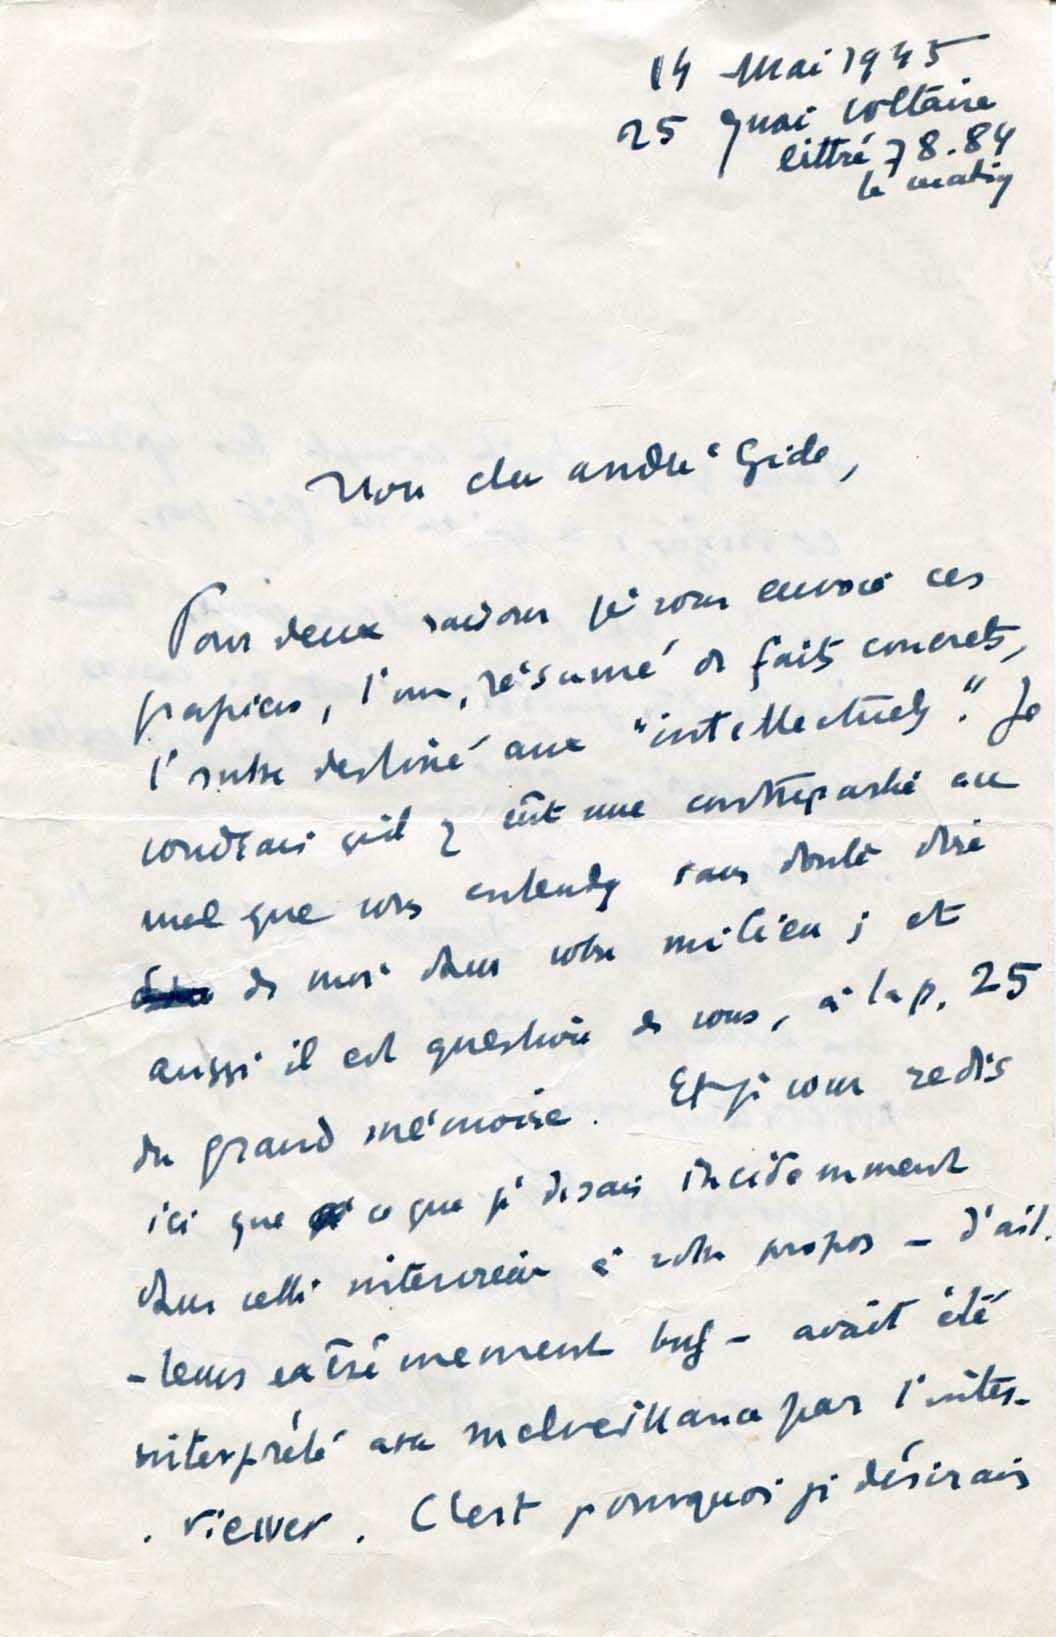 14 Mai 1945
25 quai voltaire
littré 78.84
le matin
Mon cher andré Gide,
Pour deux raisons je vous envoie ces
papiers, l'un, résumé de faits concrets,
l'autre destiné aux "intellectuels". Je
voudrais qu'il y eût une contrepartie au
mal que vous entendez sans doute dire
de moi dans votre milieu ; et
aussi il est question de vous, à la p. 25
du grand mémoire. Et je vous redis
ici que ce que je disais incidemment
dans cette interview à votre propos – d'ail.
-leurs extrêmement bref – avait été
interprété avec malveillance par l'inter-
.viewer. C'est pourquoi je désirais